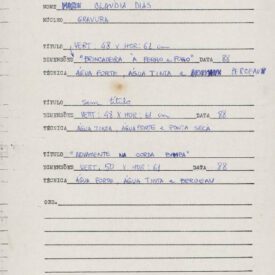 NOME CLAUDIA DIAS
NÚCLEO GRAVURA
TÍTULO VERT. 48 X HOR: 61 cm
DIMENSÕES "BRINCADEIRA À FERRO e FOGO" DATA 88
TÉCNICA ÁGUA FORTE, ÁGUA TINTA e
TÍTULO Sem título
DIMENSÕES VERT: 48 X HOR: 61 DATA 88
TÉCNICA ÁGUA TINTA, ÁGUA FORTE e PONTA SECA
TÍTULO "NOVAMENTE NA CORDA BAMBA"
DIMENSÕES VERT. 50 X HOR: 61 DATA 88
TÉCNICA ÁGUA FORTE, ÁGUA TINTA e
OBS.